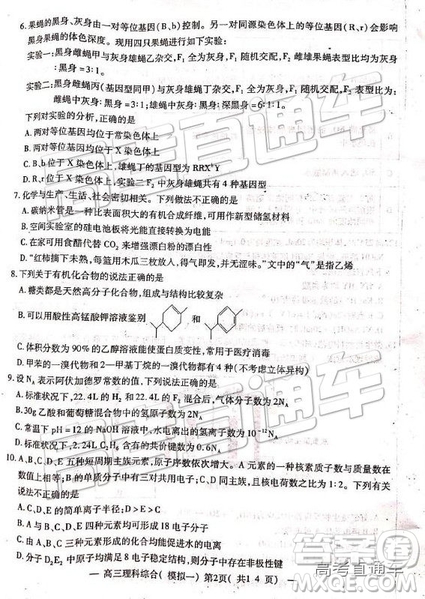 6.果蝇的黑身、灰身由一对等位基因(B、b)控制。另一对同源染色体上的等位基因(R、r)会影响
黑身果蝇的体色深度。现用四只果蝇进行如下实验:
实验一:黑身雌蝇甲与灰身雄蝇乙杂交,F₁ 全为灰身,F₁ 随机交配,F₂ 雌雄果蝇表型比均为灰身
:黑身=3:1。
实验二:黑身雌蝇丙(基因型同甲)与灰身雄蝇丁杂交,F₁ 全为灰身,F₁ 随机交配,F₂ 表型比为:
雌蝇中灰身:黑身=3:1;雄蝇中灰身:黑身:深黑身=6:1:1。
下列对实验的分析,正确的是
A.两对等位基因均位于常染色体上
B.两对等位基因均位于 X 染色体上
C.R、r位于 X 染色体上,雄蝇丁的基因型为
D.B、b位于 X 染色体上,实验二 F₂ 中灰身雄蝇共有 4 种基因型
7.化学与生产、生活、社会密切相关。下列做法不正确的是
A.碳纳米管是一种比表面积大的有机合成纤维,可用作新型储氢材料
B.空间实验室的硅电池板将光能直接转换为电能
C.在家可用食醋代替 CO₂ 来增强漂白粉的漂白性
D."红柿摘下未熟,每篮用木瓜三枚放入,得气即发,并无涩味。"文中的"气"是指乙烯
8.下列关于有机化合物的说法正确的是
A.糖类都是天然高分子化合物,组成与结构比较复杂
B.可以用酸性高锰酸钾溶液鉴别
C.体积分数为 90%的乙醇溶液能使蛋白质变性,常用于医疗消毒
D.甲苯的一溴代物和 2—甲基丁烷的一溴代物都有 4 种(不考虑立体异构)
9.设 Nₐ 表示阿伏加德罗常数的值,下列说法正确的是
A.标准状况下,22.4L H₂ 和 22.4L F₂ 混合后,气体分子数为 2Nₐ
B.30g 乙酸和葡萄糖混合物中的氢原子数为 2Nₐ
C.常温下 pH=12 的 NaOH 溶液中,水电离出的氢离子数为 10⁻¹²Nₐ
D.标准状况下,2.24L C₂H₆ 含有的共价键数为 0.6Nₐ
10.A、B、C、D、E 五种短周期主族元素,原子序数依次增大。A 元素的一种核素质子数与质量数在
数值上相等;B的单质分子中有三对共用电子;C、D 同主族,且核电荷数之比为 1:2。下列有关
说法不正确的是
A.C、D、E 的简单离子半径:D>E>C
B.A 与 B、C、D、E 四种元素均可形成 18 电子分子
C.由 A、B、C 三种元素形成的化合物均可促进水的电离
D.分子 D₂E₂ 中原子均满足 8 电子稳定结构,则分子中存在非极性键
— 高三理科综合( 模拟一 ) 第2页( 共1 4 页)—
高考直通车
高考直通车
答案圈